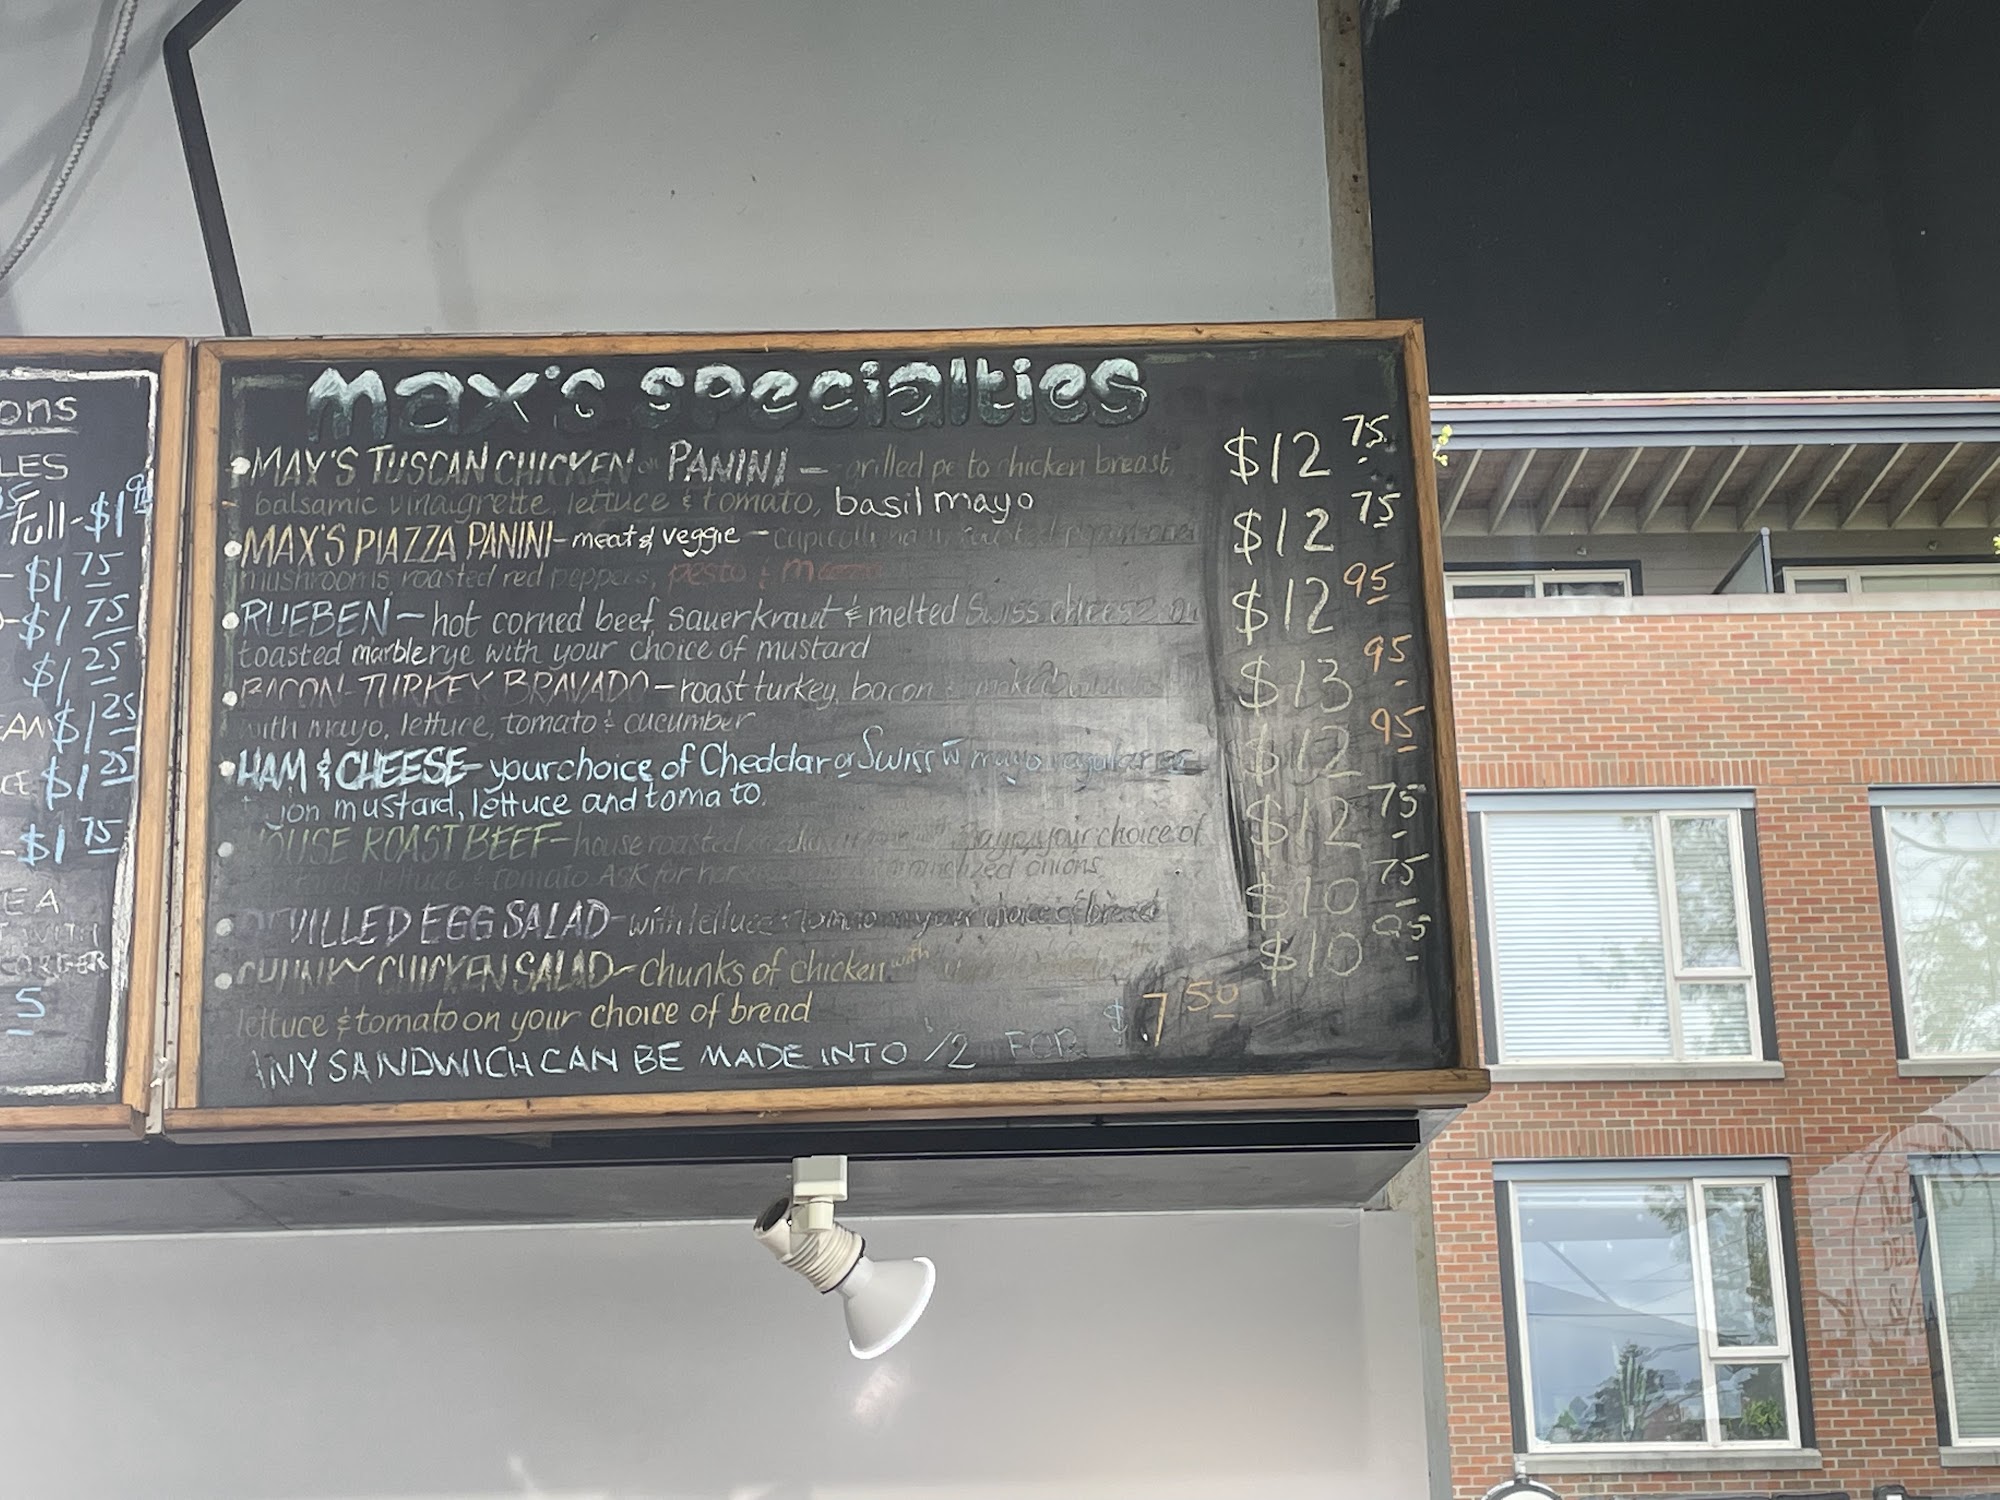 ons
LES
Full-$1
$1 75
$1 75
$1 25
$1 25
$1 25
-$1 75
E A
WITH
5
max's specialties
MAX'S TUSCAN CHICKEN PANINI – grilled chicken breast, $12 75
balsamic vinaigrette, lettuce & tomato, basil mayo
MAX'S PIAZZA PANINI – meat & veggie – $12 75
mushrooms, roasted red peppers, pesto &
RUEBEN – hot corned beef sauerkraut & melted Swiss cheese on $12 95
toasted marble rye with your choice of mustard
BACON-TURKEY BRAVADO – roast turkey, bacon $13 95
with mayo, lettuce, tomato & cucumber
HAM & CHEESE – your choice of Cheddar or Swiss w mayo $12 95
jon mustard, lettuce and tomato.
OUSE ROAST BEEF – house roasted your choice of $12 75
lettuce & tomato Ask for onions
VILLED EGG SALAD – with lettuce your choice of bread $10 75
CHICKEN SALAD – chunks of chicken with $10 95
lettuce & tomato on your choice of bread
ANY SANDWICH CAN BE MADE INTO 1/2 FOR $7 50
MAX'S
DELI
&